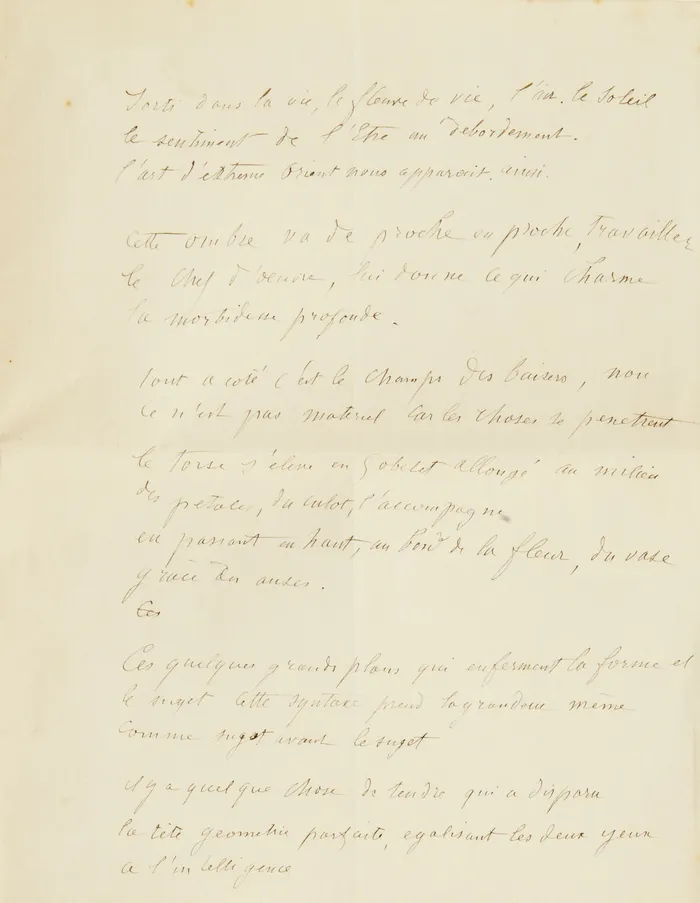 Sorti dans la vie, le fleuve de vie, l'air. le soleil
le sentiment de l'Etre au debordement.
l'art d'extreme Orient nous apparait. ainsi.
Cette ombre va de proche en proche, travailler
le chef d'oeuvre, lui donne ce qui charme
la morbidesse profonde.
tout a coté c'est le champs des baisers, non
ce n'est pas materiel car les choses se penetrent
le torse s'éleve en gobelet allongé au milieu
des petales, du culot, l'accompagne
en passant en haut, au bord de la fleur, du vase
grace des anses.
Ces
Ces quelques grands plans qui enferment la forme et
le suget cette syntaxe prend la grandeur même
comme suget avant le suget
il y a quelque chose de tendre qui a disparu
la tête geometrie parfaite, egalisant les deux yeux
a l'intelligence